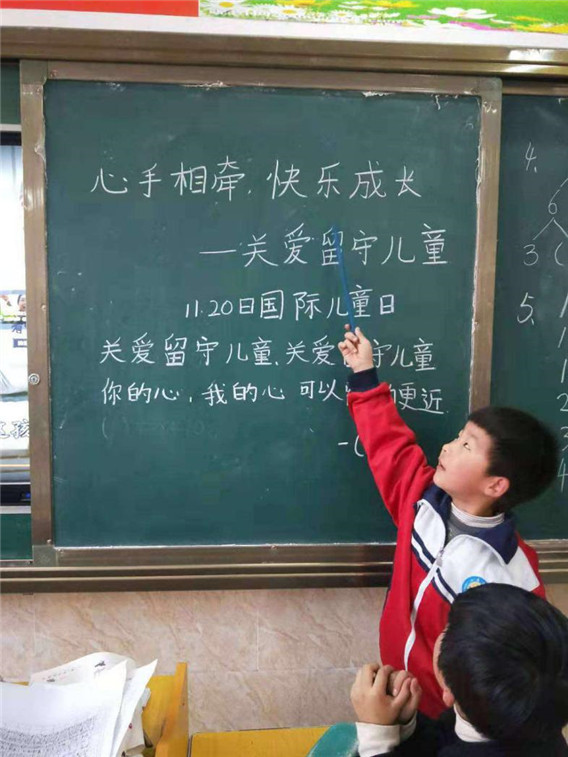 心手相牵.快乐成长
—关爱留守儿童
11.20日国际儿童日
关爱留守儿童、关爱 守儿童
你的心，我的心 可以 更近
4、
6
3 (
5、